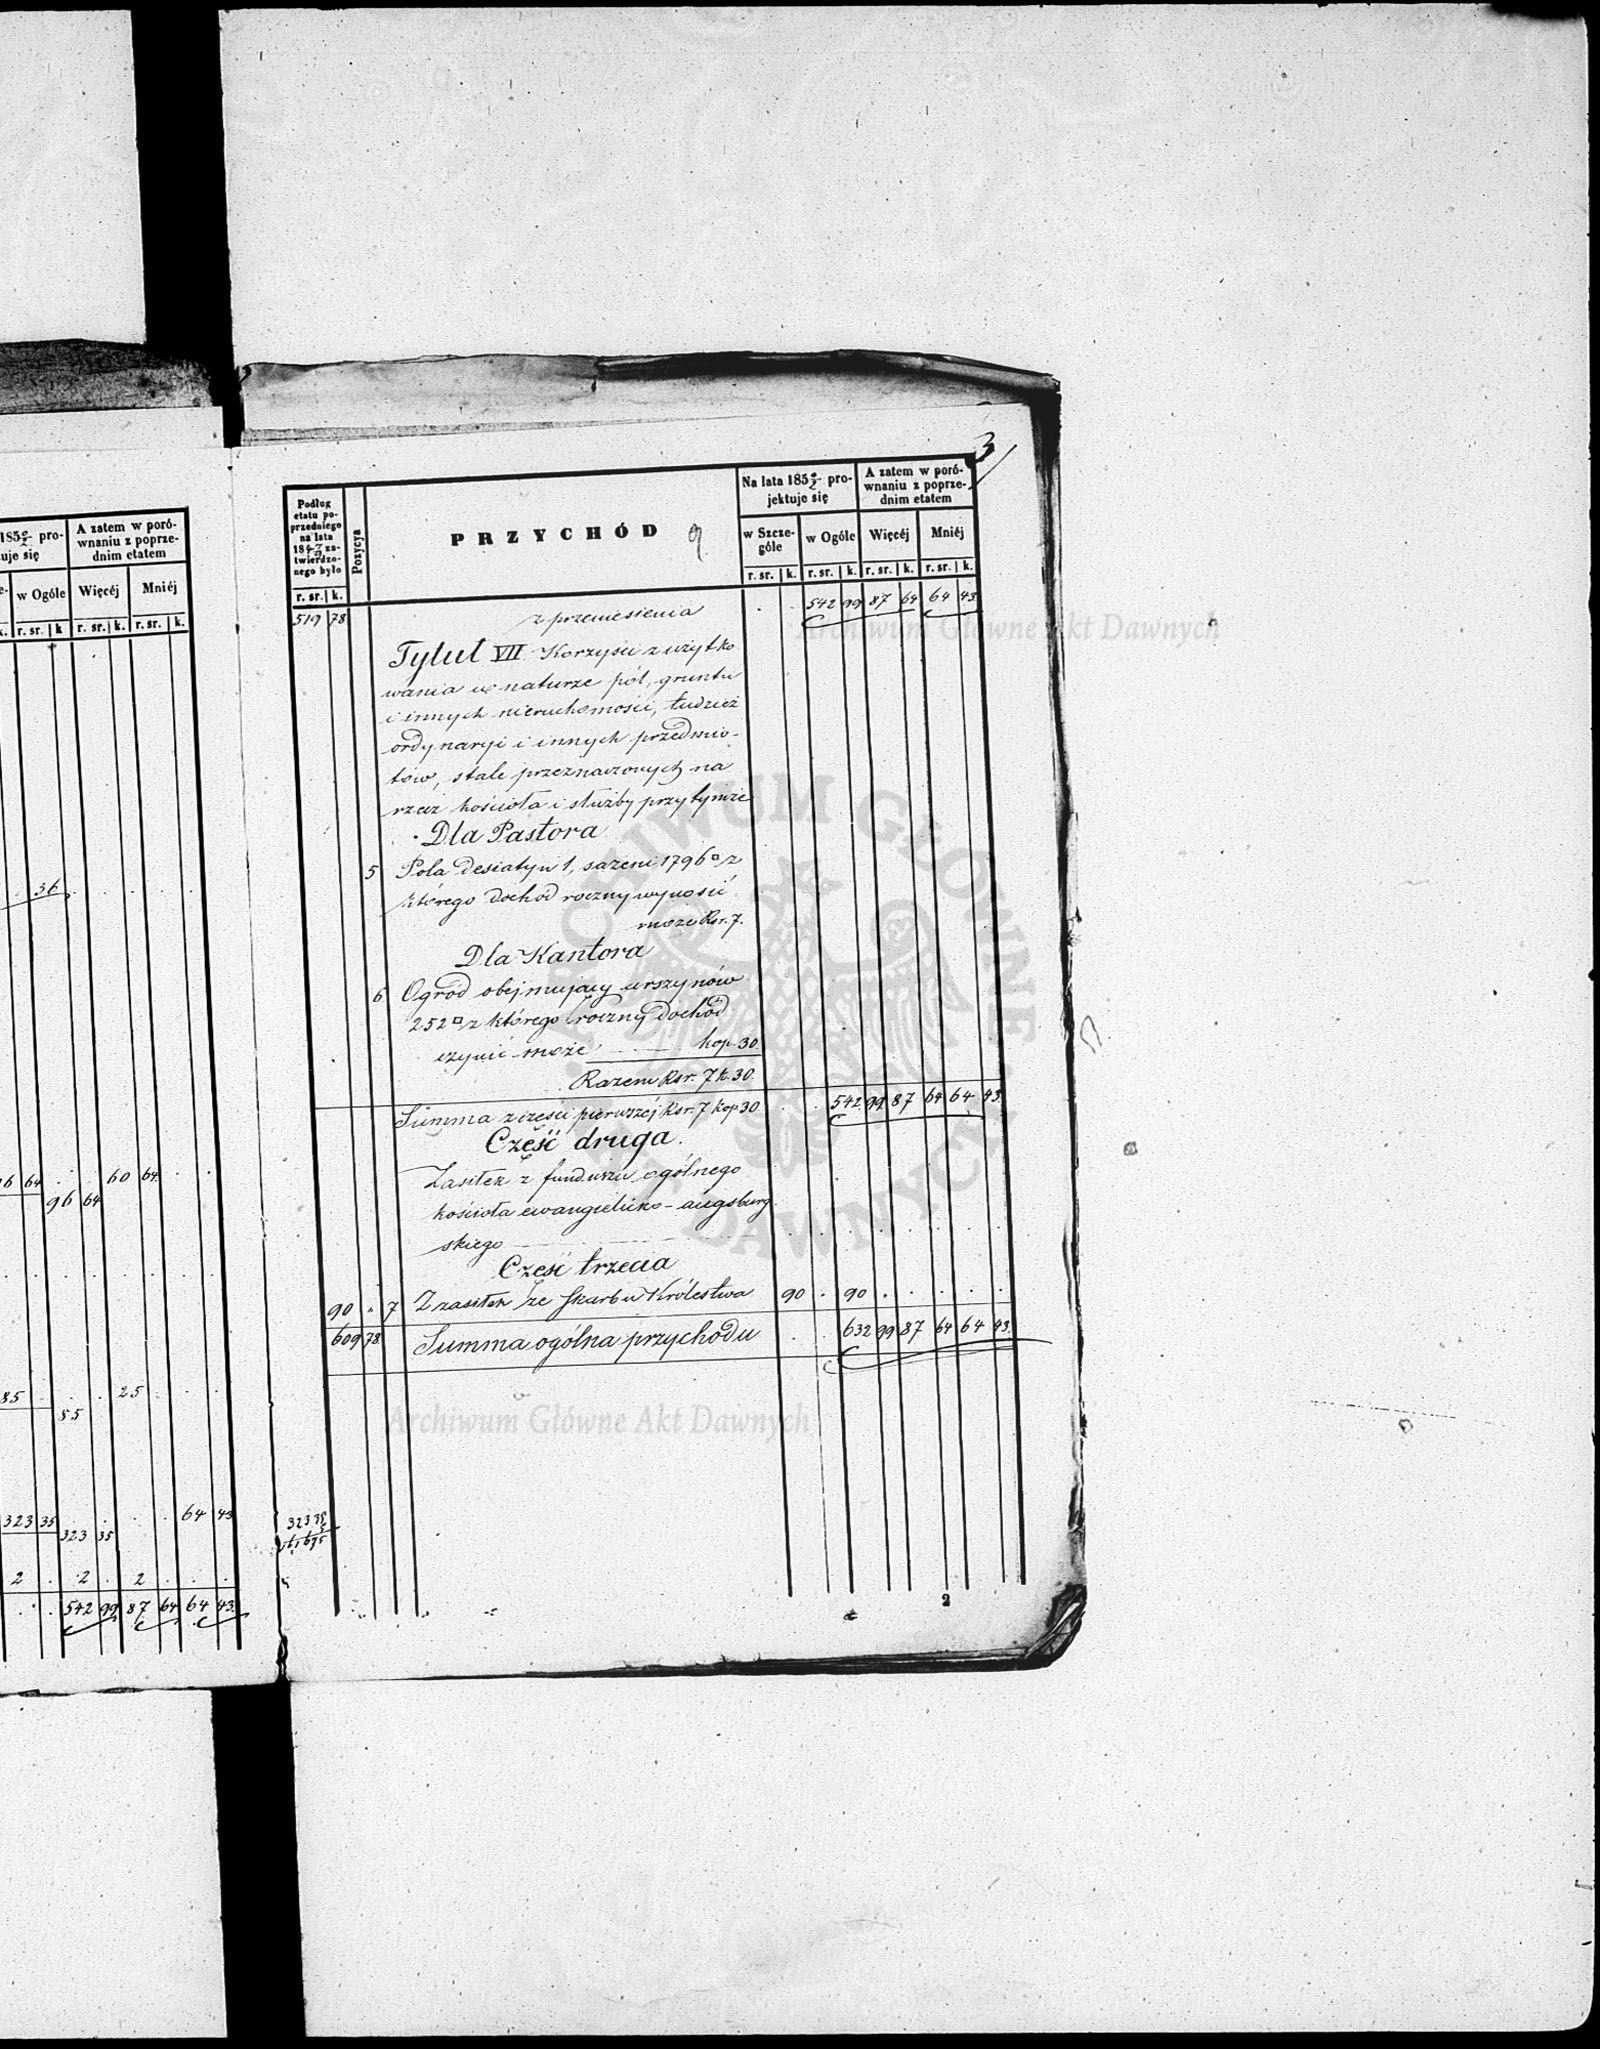 1850/2 pro-
tuje się
A zatem w poró-
wnaniu z poprze-
dnim etatem
w Ogóle
Więcéj
Mniéj
k. r. sr. k r. sr. k. r. sr. k.
36
96 64 60 64
96 64
85 25
85
323 35 64 43
323 35
2 2 2
542 99 87 64 64 43
3
Podług
etatu po-
przedniego
na lata
1847/9 za-
twierdzo-
nego było
Pozycya
PRZYCHÓD
Na lata 1850/2 pro-
jektuje się
A zatem w poró-
wnaniu z poprze-
dnim etatem
w Szcze-
góle
w Ogóle
Więcéj
Mniéj
r. sr. k. r. sr. k. r. sr. k. r. sr. k. r. sr. k.
519 78 z przeniesienia 542 99 87 64 64 43
Tytuł VII Korzyści z użytko
wania w naturze pól, gruntu
i innych nieruchomości, tudzież
ordynaryi i innych przedmio-
tów, stale przeznaczonych na
rzecz kościoła i służby przy tymże
Dla Pastora
5 Pola Desiatyn 1, sażeni 1796 □ z
którego dochód roczny wynosić
może Rsr. 7.
Dla Kantora
6 Ogród obejmujący urszynów
252 □ z którego roczny dochód
czynić może kop 30
Razem Rsr. 7 k. 30.
Summa z części pierwszéj Rsr. 7 kop 30 542 99 87 64 64 43
Część druga.
Zasiłek z funduszu ogólnego
kościoła ewangelicko-augsburg
skiego
Część trzecia
90 7 Z zasiłek ze Skarbu Królestwa 90 90
609 78 Summa ogólna przychodu 632 99 87 64 64 43
323 35
2
Archiwum Główne Akt Dawnych
Archiwum Główne Akt Dawnych
ARCHIWUM GŁÓWNE AKT DAWNYCH